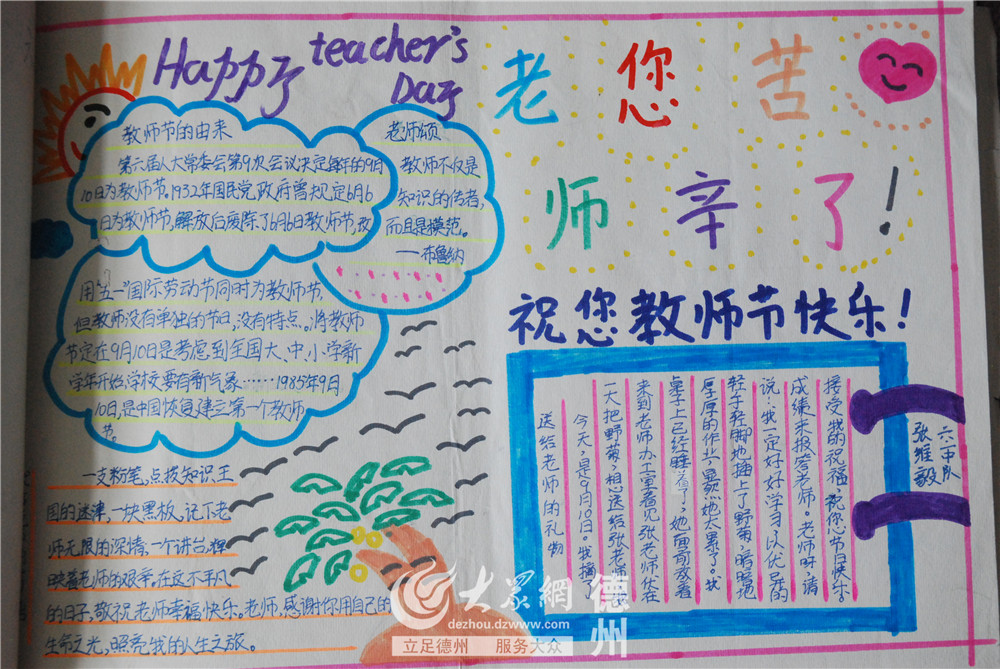 Happy teacher's
Day
老 您 苦
师 辛 了!
祝您教师节快乐!
教师节的由来
第六届人大常委会第9次会议决定每年的9月
10日为教师节。1932年国民党政府曾规定6月6
日为教师节,解放后废除了6月6日教师节,改
用“五一”国际劳动节同时为教师节,
但教师没有单独的节日,没有特点。将教师
节定在9月10日是考虑到全国大、中、小学新
学年开始,学校要有新气象……1985年9月
10日,是中国恢复建立第一个教师
节。
老师颂
教师不仅是
知识的传者,
而且是模范。
——布鲁纳
一支粉笔,点拨知识王
国的迷津,一块黑板,记下老
师无限的深情,一个讲台,辉
映着老师的艰辛,在这不平凡
的日子,敬祝老师幸福快乐。老师,感谢你用自己的
生命之光,照亮我的人生之旅。
送给老师的礼物
今天,是9月10日。我摘了
一大把野菊,想送给张老师。
来到老师办工室看见张老师伏在
桌子上已经睡着了,她面前放着
厚厚的作业,显然她太累了。我
轻手轻脚地插上了野菊,暗暗地
说:“我一定好好学习以优异的
成绩来报答老师。老师啊,请
接受我的祝福,祝您节日快乐。
六中队
张维毅
大眾網 德州
dezhou.dzwww.com
立足德州 服务大众